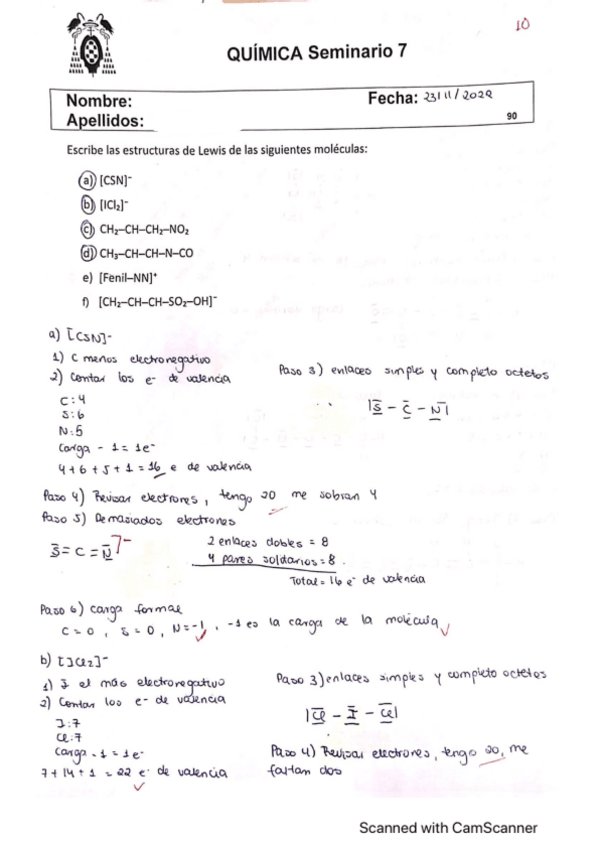 10
QUÍMICA Seminario 7
Nombre:
Fecha: 23/11/2022
Apellidos:
90
Escribe las estructuras de Lewis de las siguientes moléculas:
a) [CSN]⁻
b) [ICl₂]⁻
c) CH₂–CH–CH₂–NO₂
d) CH₃–CH–CH–N–CO
e) [Fenil–NN]⁺
f) [CH₂–CH–CH–SO₂–OH]⁻
a) [CSN]⁻
1) C menos electronegativo
2) Contar los e⁻ de valencia
C: 4
S: 6
N: 5
Carga - 1 = 1e⁻
4 + 6 + 5 + 1 = 16 e de valencia
Paso 3) enlaces simples y completo octetos
|S̅ – C̅ – N̅|
Paso 4) Revisar electrones, tengo 20 me sobran 4
Paso 5) Demasiados electrones
S̅ = C = N̅ ]⁻
2 enlaces dobles = 8
4 pares solitarios = 8
Total = 16 e⁻ de valencia
Paso 6) carga formal
C = 0, S = 0, N = -1, -1 es la carga de la molécula
b) [ICl₂]⁻
1) I el más electronegativo
2) Contar los e⁻ de valencia
I: 7
Cl: 7
Carga - 1 = 1e⁻
7 + 14 + 1 = 22 e⁻ de valencia
Paso 3) enlaces simples y completo octetos
|C̅l̅ – I̅ – C̅l̅|
Paso 4) Revisar electrones, tengo 20, me
faltan dos
Scanned with CamScanner